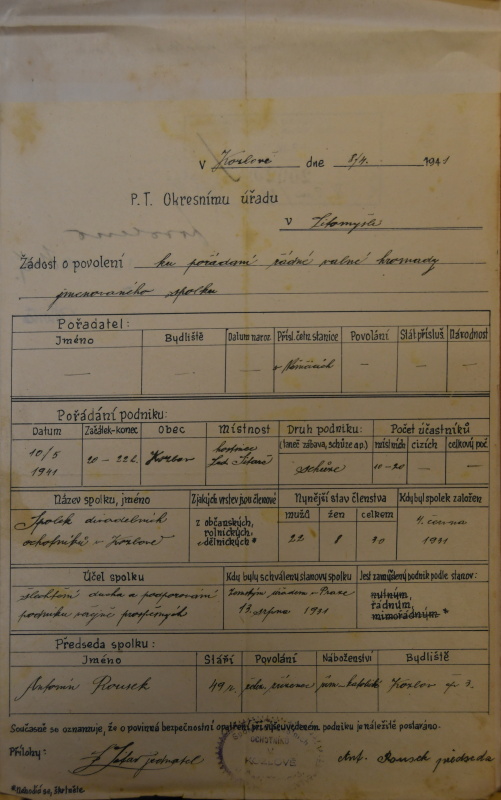 V Kozlově dne 8/4. 1941
P.T. Okresnímu úřadu
v Litomyšli
Žádost o povolení ku pořádání řádné valné hromady
jmenovaného spolku
Pořadatel:
Jméno Bydliště Datum naroz. Přísl. četn. stanice Povolání Stát. přísluš. Národnost
— — — v Němčicích — — —
Pořádání podniku:
Datum Začátek-konec Obec Místnost Druh podniku: Počet účastníků
(taneč. zábava, schůze a p.) místních cizích celkový poč.
10/5 1941 20-22 h. Kozlov hostinec schůze 10-20 — —
Název spolku, jméno Z jakých vrstev jsou členové Nynější stav členstva Kdy byl spolek založen
mužů žen celkem
Spolek divadelních z občanských, 4. června
ochotníků v Kozlově rolnických, 22 8 30 1931
dělnických*
Účel spolku Kdy byly schváleny stanovy spolku Jest zamýšlený podnik podle stanov:
šlechtění ducha a podporování zemským úřadem v Praze nutným,
podniků 13. srpna 1931 řádným,
mimořádným*
Předseda spolku:
Jméno Stáří Povolání Náboženství Bydliště
Antonín Rousek 49 r. řím. katolické Kozlov čp 3.
Současně se oznamuje, že o povinná bezpečnostní opatření při výše uvedeném podniku je náležitě postaráno.
Přílohy: jednatel Ant. Rousek předseda
OCHOTNÍKŮ
KOZLOVĚ
*Nehodící se, škrtněte.